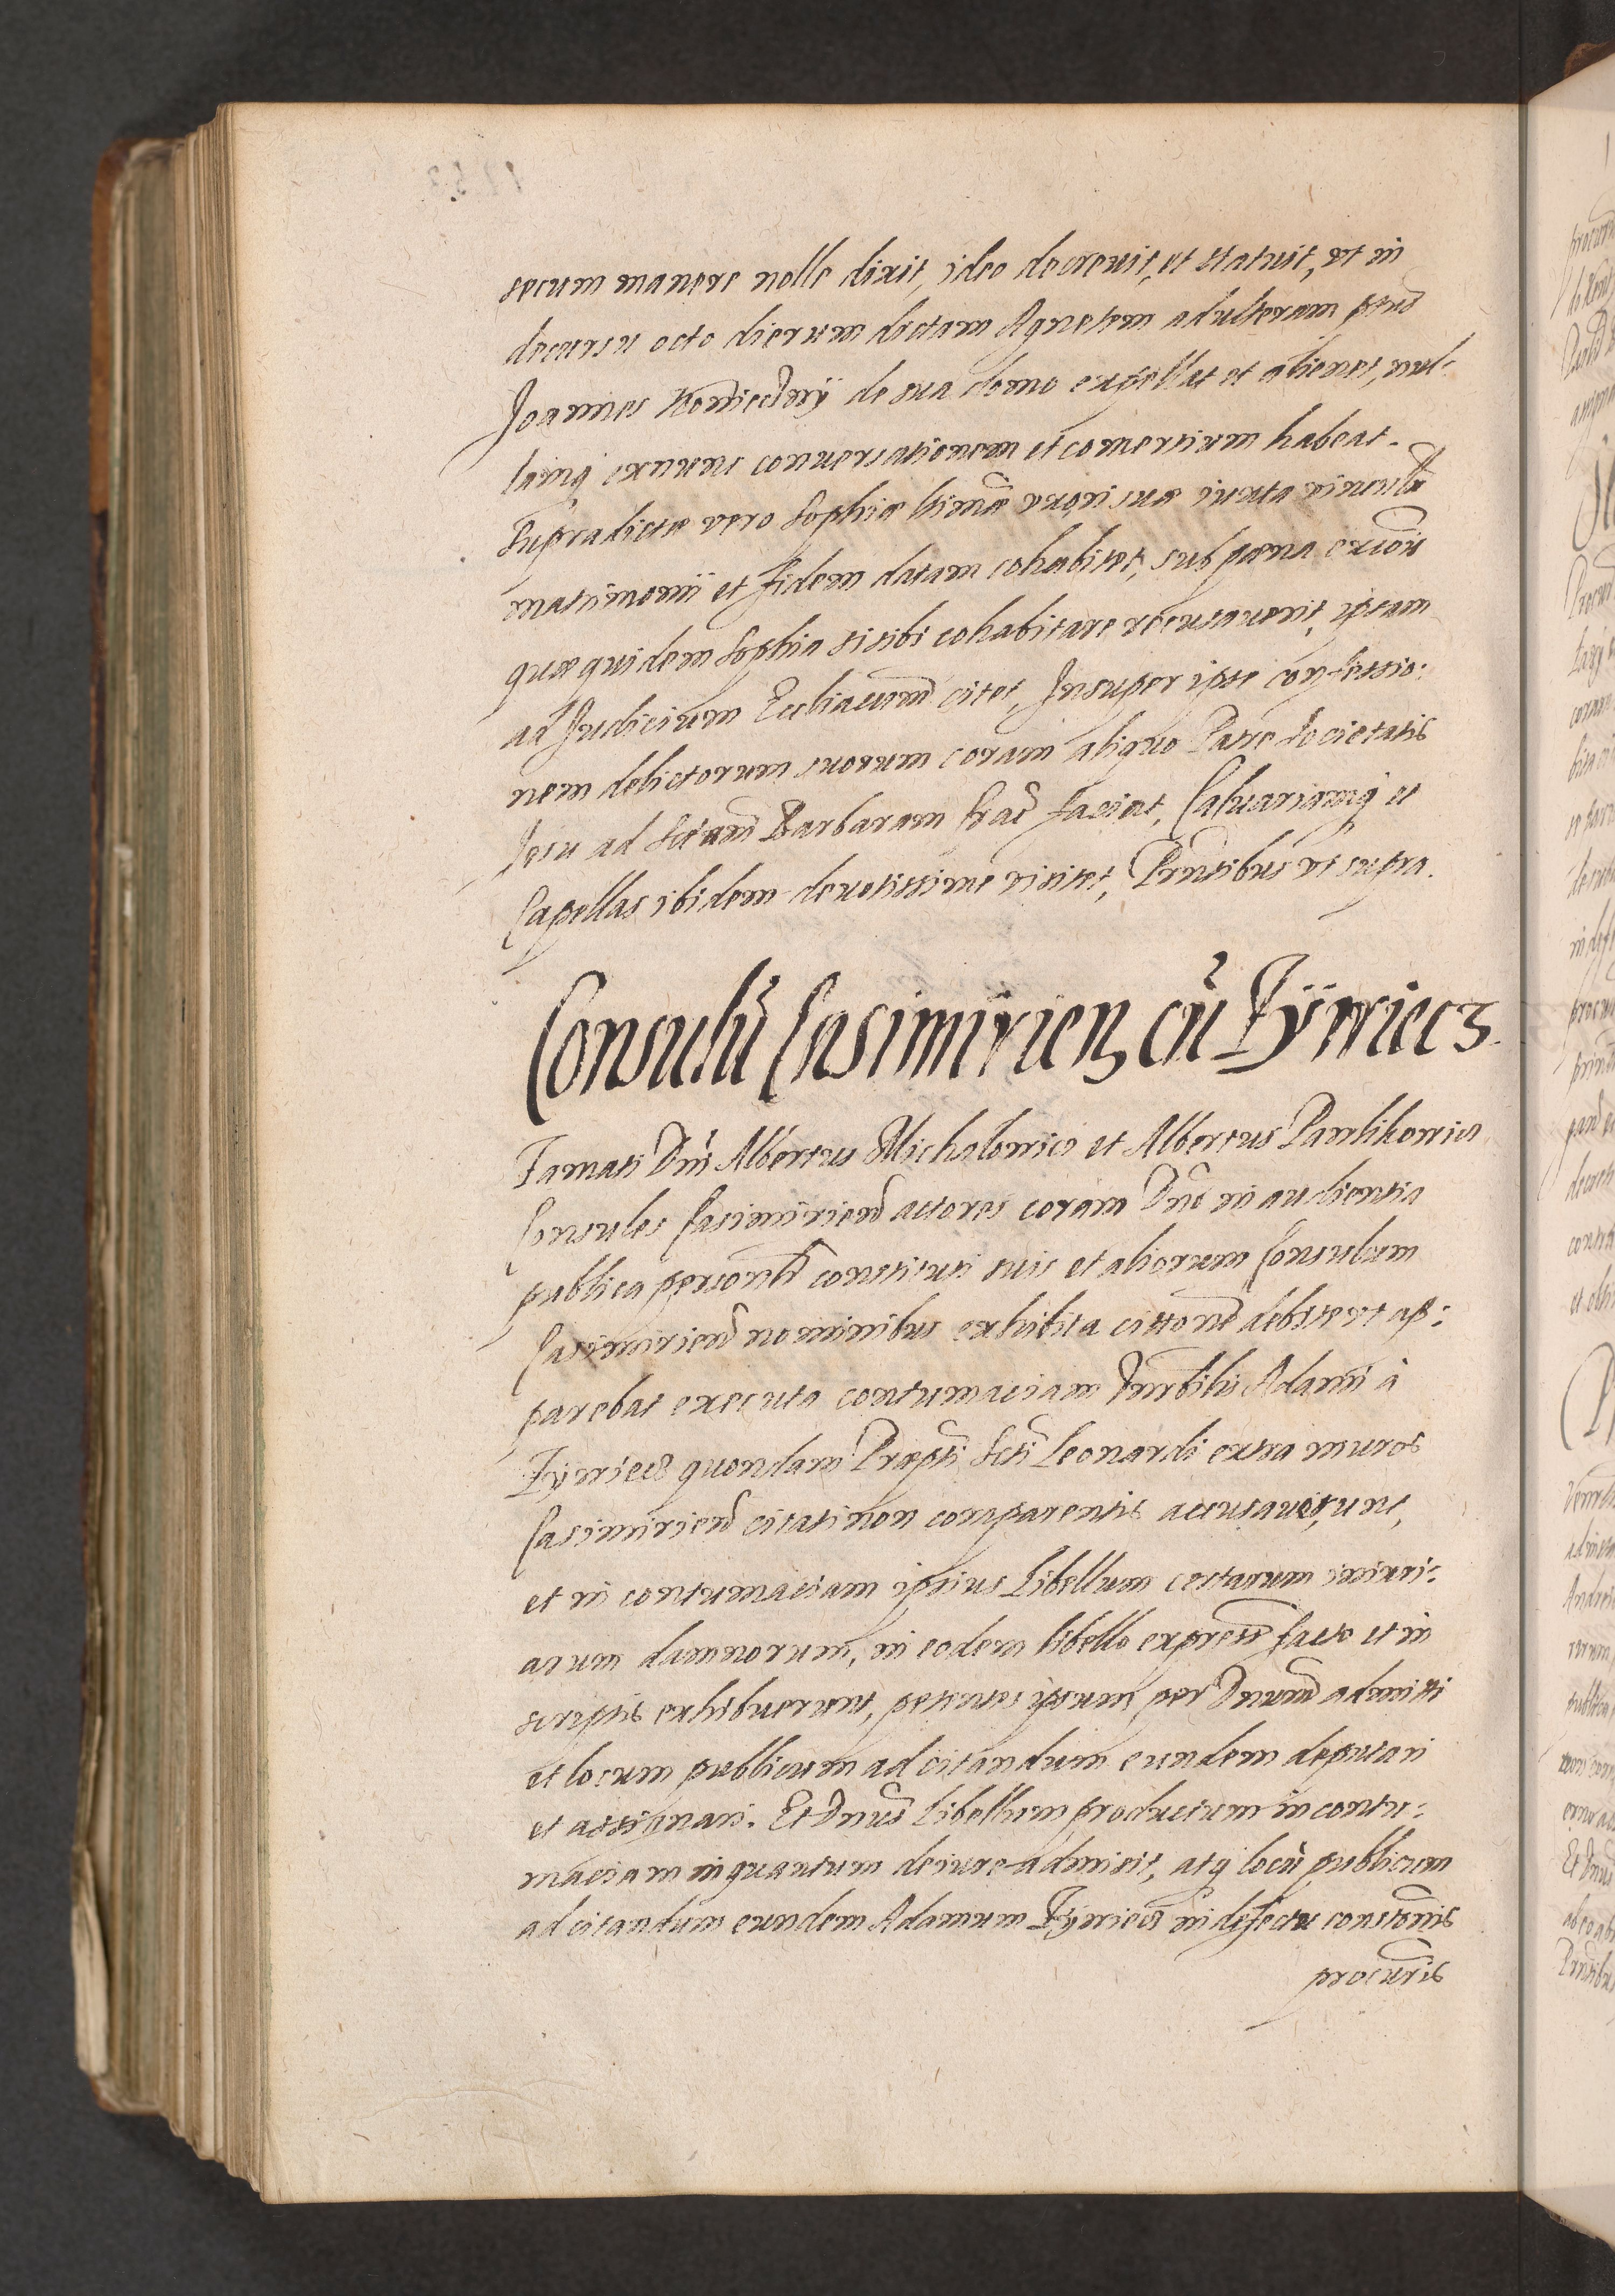 secum manere nolle dixit, ideo decreuit, et statuit, vt in
decursu octo dierum dictam Agnetem adulteram ptus
Joannes de sua domo expellat et alienet, nul-
lamq ex nunc conuersationem et comertium habeat.
Supradictæ vero Sophiæ ltimæ vxori suæ iuxta vincula
matrimonii et fidem datam cohabitet, sub pœna excois
quæ quidem Sophia si sibi cohabitare recusauerit, ipsam
ad Judicium Eccliacum citet, Insuper ipse confessio:
nem delictorum suorum coram aliquo Patre Societatis
Jesu ad Sctam Barbaram Crac faciat, Caluariamq et
Capellas ibidem deuotissime visitet, Pntibus vt supra.
Consulū Casimirien cū Tyniecz.
Famati Dni Albertus Micholowicz et Albertus Pawlikowicz
Consules Casimirien actores coram Dno in audientia
publica personlr constituti suis et aliorum Consulum
Casimirien nominibus exhibita cittone debite vt ap:
parebat executa contumaciam Honorbilis Adami à
Tyniecz quondam Præpti Scti Leonardi extra muros
Casimirien citati non comparentis accusauerunt,
et in contumaciam ipsius Libellum certarum iniuri:
arum damnorum, in eodem libello express facto et in
scriptis exhibuerunt, petentes ipsum per Dnum admitti
et locum publicum ad citandum eundem deputari
et assignari. Et Dnus Libellum productum in contu:
maciam in quantum de iure admisit, atq locū publicum
ad citandum eundem Adamum Tyniecz in defectu constonis
procuris